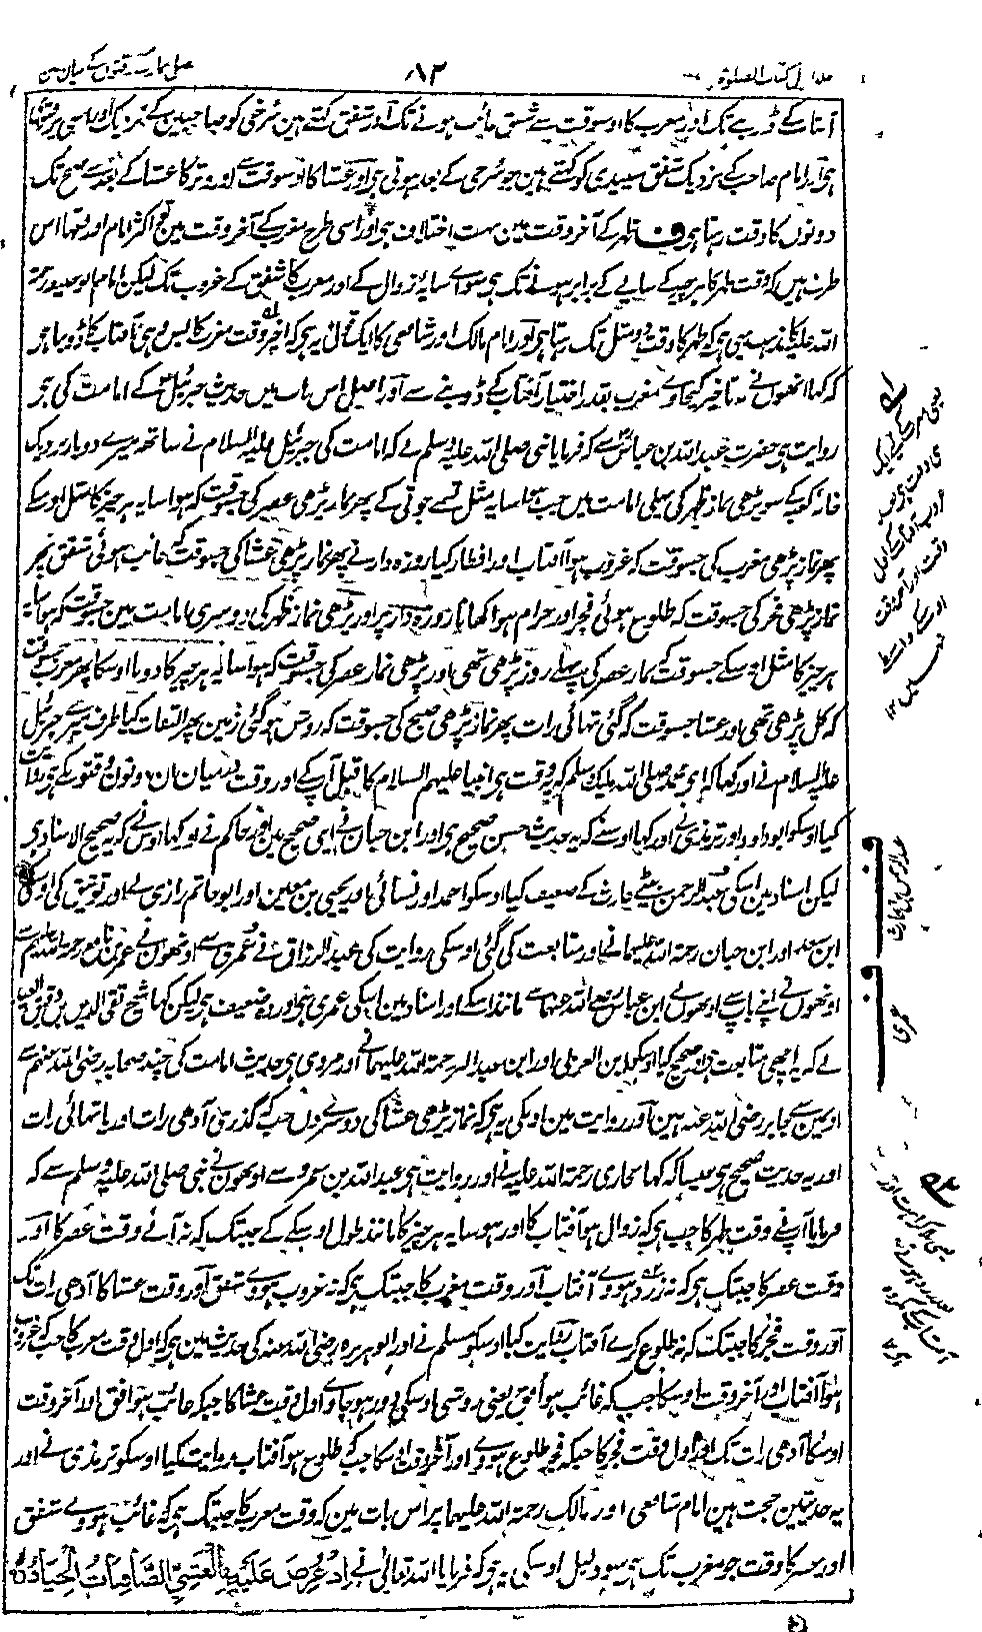 جلد اول کتاب الصلوٰة ۸۲ فصل نماز کے وقتوں کے بیان مین
کے ڈوبنے تک اور مغرب کا اوسوقت سے شفق غائب ہونے تک اور شفق کہتے ہین سرخی کو صاحبین کے نزدیک اور اسی پر
ہی اور امام صاحب کے نزدیک شفق سپیدی کو کہتے ہین جو سرخی کے بعد ہوتی ہی اور عشا کا اوسوقت سے اور وتر کا عشا کے بعد سے صبح تک
دونوں کا وقت رہتا ہی ف ظہر کے آخر وقت مین بہت اختلاف ہی اور اسی طرح مغرب کے آخر وقت مین اکثر امام اور فقہا اس
طرف ہیں کہ وقت ظہر کا ہر چیز کے سایے کے برابر ہونے تک ہی سواے سایہ زوال کے اور مغرب کا شفق کے غروب تک لیکن امام ابو حنیفہ رحمة
اللہ علیہ کا مذہب یہی ہی کہ ظہر کا وقت دو مثل تک رہتا ہی اور امام مالک اور شافعی کا ایک قول یہ ہی کہ آخر وقت مغرب کا بس وہی آفتاب کا ڈوبنا ہی
کہ کہا انھوں نے نہ تاخیر کیجاوے مغرب بقدر اختیار آفتاب کے ڈوبنے سے اور اصل اس باب میں حدیث جبرئیل کے امامت کی ہی
روایت ہی حضرت عبد اللہ بن عباس سے کہ فرمایا نبی صلی اللہ علیہ وسلم نے کہ امامت کی جبرئیل علیہ السلام نے ساتھ میرے دو بار نزدیک
خانہ کعبہ کے سو پڑھی نماز ظہر کی پہلی امامت میں جب تھا سایہ مثل تسمے جوتی کے پھر نماز پڑھی عصر کی جسوقت کہ ہوا سایہ ہر چیز کا مثل اوسکے
پھر نماز پڑھی مغرب کی جسوقت کہ غروب ہوا آفتاب اور افطار کیا روزہ دار نے پھر نماز پڑھی عشا کی جسوقت کہ غائب ہوئی شفق پھر
نماز پڑھی فجر کی جسوقت کہ طلوع ہوئی فجر اور حرام ہوا کھانا روزہ دار پر اور پڑھی نماز ظہر کی دوسری امامت مین جسوقت کہ ہوا سایہ
ہر چیز کا مثل اوسکے جسوقت کہ نماز عصر کی پہلے روز پڑھی تھی اور پڑھی نماز عصر کی جسوقت کہ ہوا سایہ ہر چیز کا دونا اوسکا پھر مغرب جسوقت
کہ کل پڑھی تھی اور عشا جسوقت کہ گئی تہائی رات پھر نماز پڑھی صبح کی جسوقت کہ روشن ہو گئی زمین پھر التفات کیا طرف میرے جبرئیل
علیہ السلام نے اور کہا کہ ای محمد صلی اللہ علیک وسلم کہ یہ وقت ہی انبیا علیہم السلام کا قبل آپکے اور وقت درمیان ان دونوں وقتوں کے ہی روایت
کیا اوسکو ابو داود اور ترمذی نے اور کہا اوسنے کہ یہ حدیث حسن صحیح ہی اور ابن حبان نے اپنی صحیح مین اور حاکم نے اور کہا اوس نے کہ صحیح الاسناد ہی
لیکن اسناد مین اسکی عبد الرحمن بیٹے حارث کے ضعیف کیا اوسکو احمد اور نسائی اور یحیی بن معین اور ابو حاتم رازی نے اور توثیق کی اوسکی
ابن سعد اور ابن حبان رحمة اللہ علیہما نے اور متابعت کی گئی اوسکی روایت کی عبد الرزاق نے عمری سے اونھون نے عمر بن نافع رحمة اللہ علیہم سے
اونھوں نے اپنے باپ سے اونھوں نے ابن عباس رضی اللہ عنہما سے مانند اسکے اور اسناد مین اسکی عمری ہی اور وہ ضعیف ہی لیکن کہا شیخ تقی الدین بن دقیق العید
نے کہ یہ اچھی متابعت ہی اور صحیح کہا اوسکو ابن العربی اور ابن عبد البر رحمة اللہ علیہما نے اور مروی ہی حدیث امامت کی چند صحابہ رضی اللہ عنہم سے
اونمین سے جابر رضی اللہ عنہ ہین اور روایت مین اونکی یہ ہی کہ نماز پڑھی عشا کی دوسرے دن جب کہ گذری آدھی رات اور یا تہائی رات
اور یہ حدیث صحیح ہی جیسا کہ کہا بخاری رحمة اللہ علیہ نے اور روایت ہی عبد اللہ بن عمرو سے اونھون نے نبی صلی اللہ علیہ وسلم سے کہ
فرمایا آپنے وقت ظہر کا جب ہی کہ زوال ہو آفتاب کا اور ہو سایہ ہر چیز کا مانند طول اوسکے کے جبتک کہ نہ آئے وقت عصر کا اور
وقت عصر کا جبتک ہی کہ نہ زرد ہووے آفتاب اور وقت مغرب کا جبتک ہی کہ نہ غروب ہووے شفق اور وقت عشا کا آدھی رات تک
اور وقت فجر کا جبتک کہ نہ طلوع کرے آفتاب روایت کیا اوسکو مسلم نے اور ابو ہریرہ رضی اللہ عنہ کی حدیث مین ہی کہ اول وقت مغرب کا جب کہ غروب
ہوا آفتاب اور آخر وقت اوسکا جب کہ غائب ہو افق یعنی روشنی اوسکی دور ہو جاوے اور اول وقت عشا کا جبکہ غائب ہو افق اور آخر وقت
اوسکا آدھی رات تک اور اول وقت فجر کا جبکہ فجر طلوع ہووے اور آخر وقت اوسکا جب طلوع ہو آفتاب روایت کیا اوسکو ترمذی نے اور
یہ حدیثین حجت ہین امام شافعی اور مالک رحمة اللہ علیہما پر اس بات مین کہ وقت مغرب کا جبتک ہی کہ غائب ہووے شفق
اور عصر کا وقت جو مغرب تک ہی سو دلیل اوسکی یہ ہی کہ فرمایا اللہ تعالی نے اِذْ عُرِضَ عَلَيْهِ بِالْعَشِيِّ الصَّافِنَاتُ الْجِيَادُ
ف
عبد الرحمن بن حارث
ف
عمری